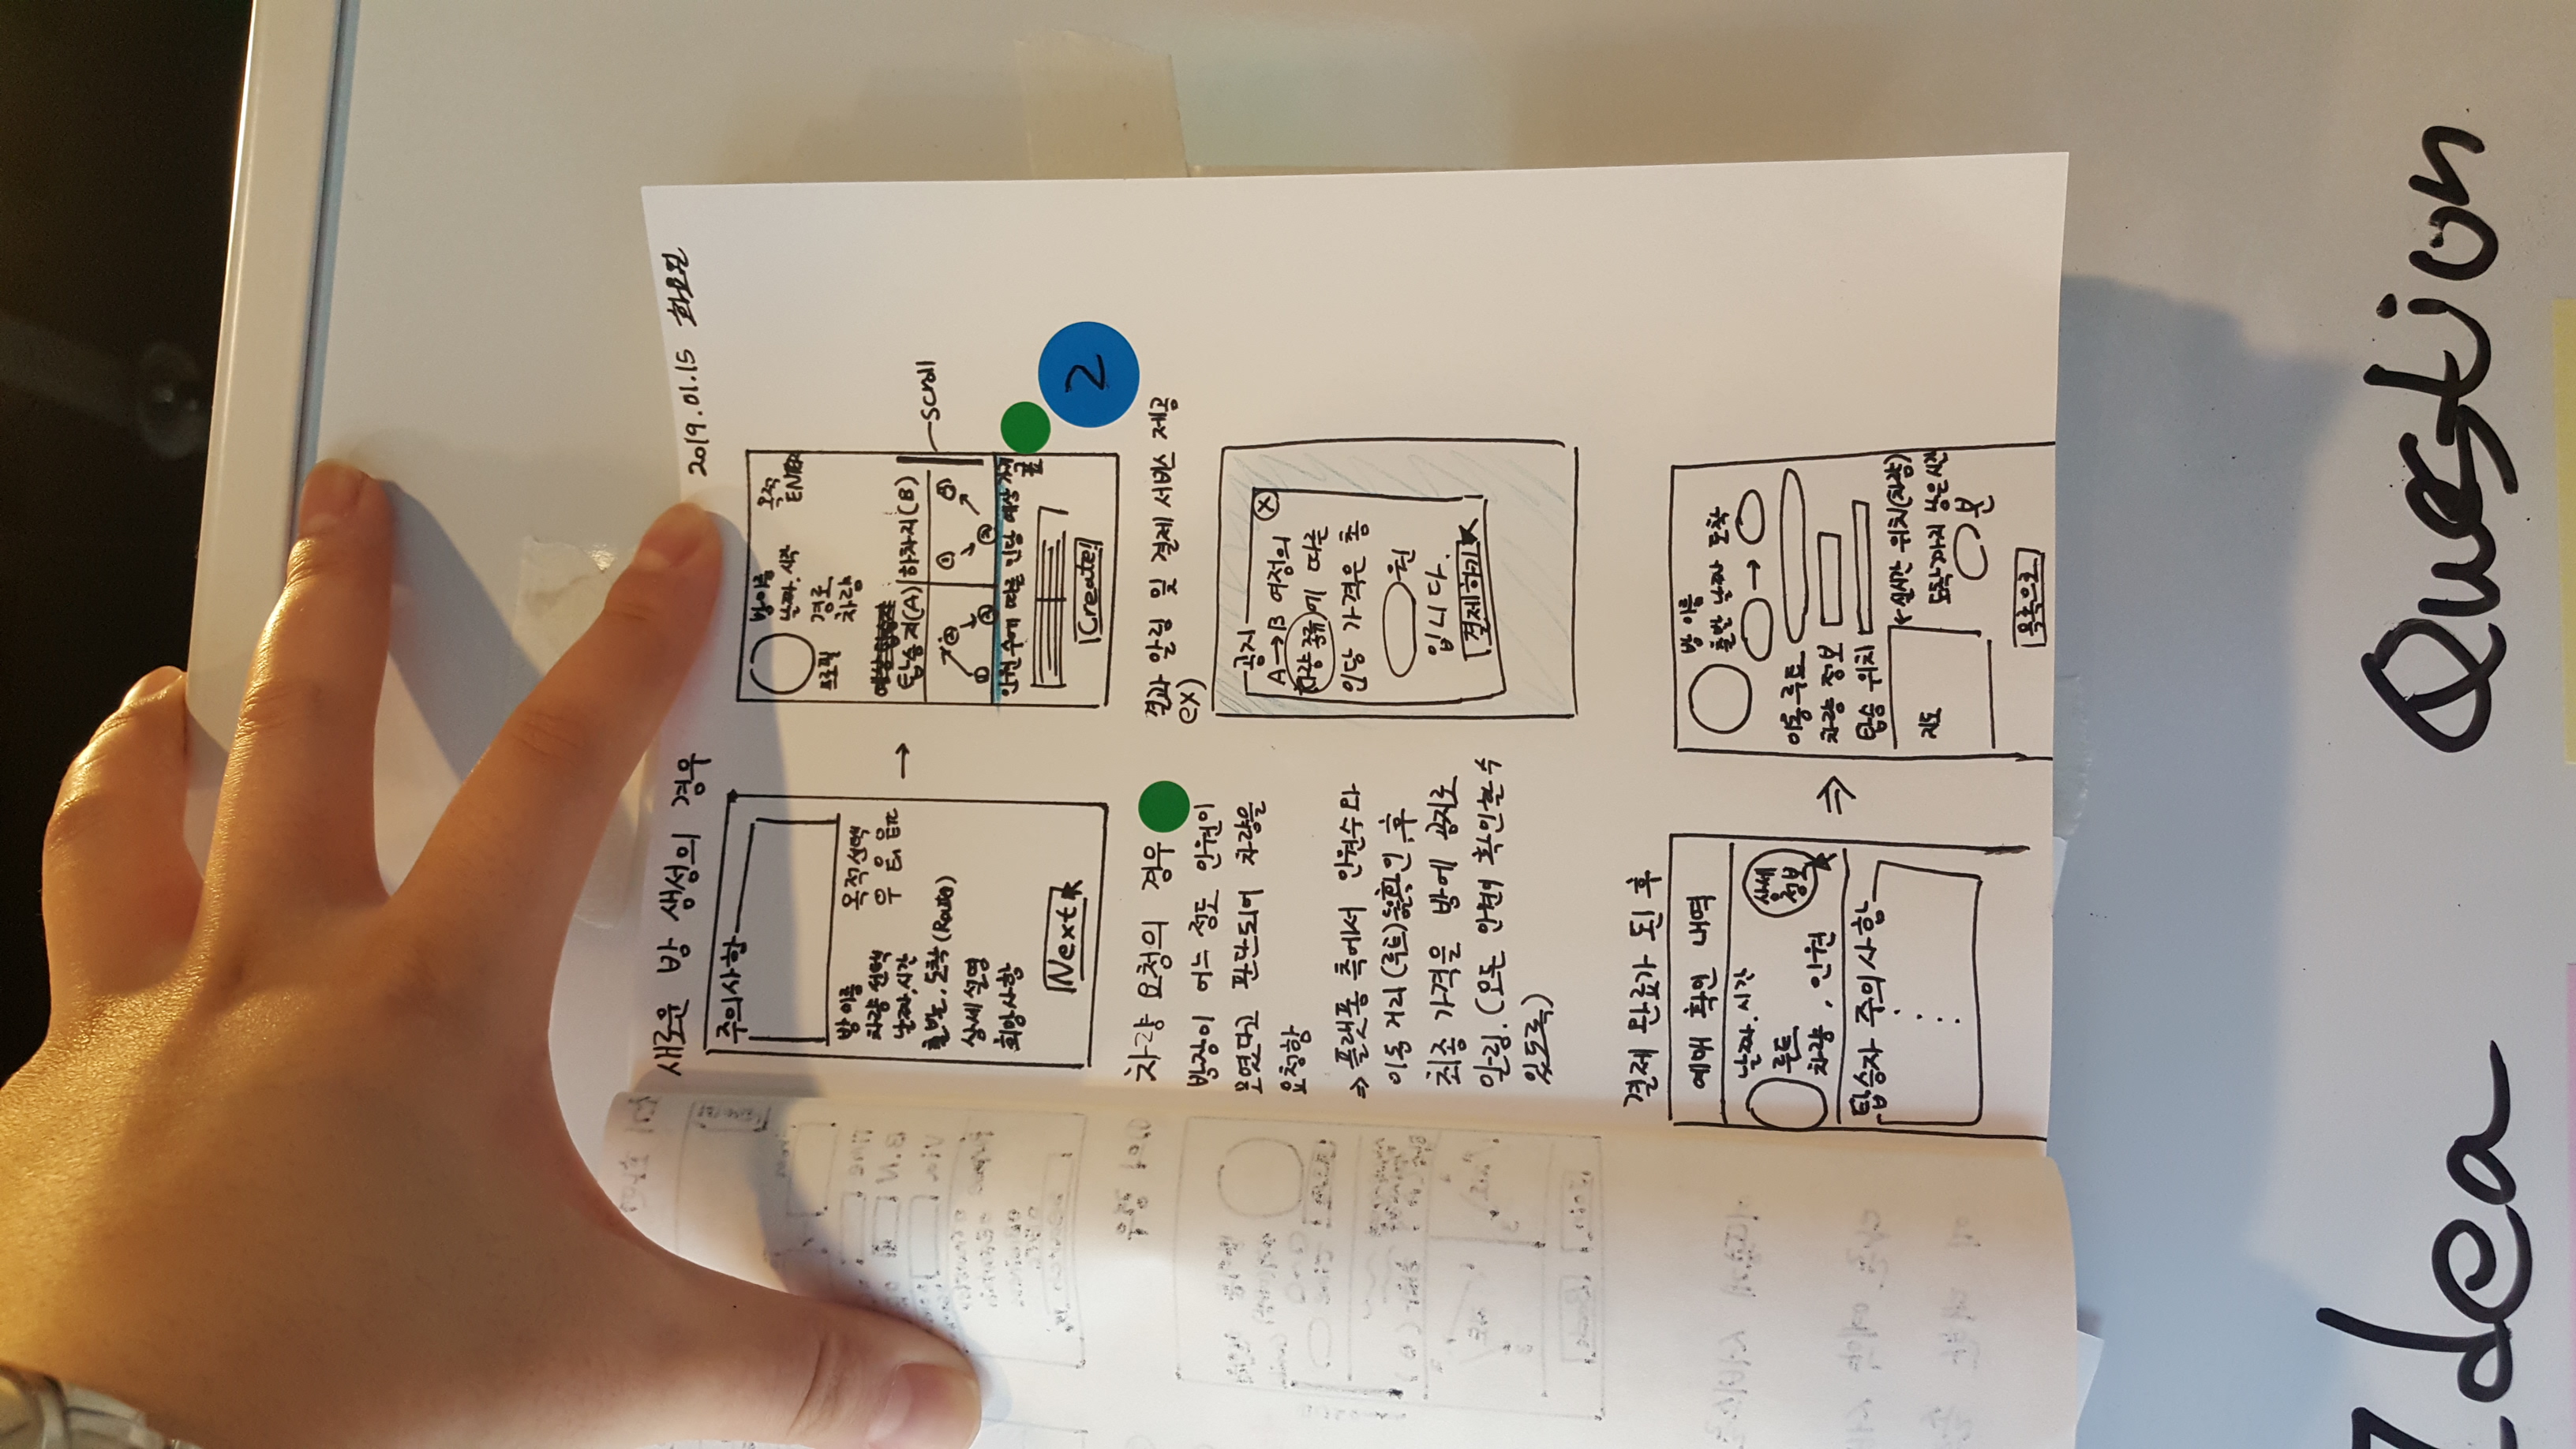 새로운 방 생성의 경우
2019.01.15 화요일
주의사항
방 이름
차량 선택
날짜, 시간
출발, 도착 (Route)
상세 설명
희망사항
목적 선택
Next
방이름
날짜, 시간
경로
차량
프로필
목적
탑승지(A) 하차지(B)
scroll
인원 수에 따른 인당 예상 가격
Create!
2
차량 요청의 경우
방장이 어느 정도 인원이
모였다고 판단되어 차량을
요청함
⇒ 플랫폼 측에서 인원수와
이동 거리 (루트)들확인 후
최종 가격을 방에 공지로
알림. (모든 인원이 확인할 수
있도록)
결과 알림 및 결제 서비스 제공
ex)
공지
X
A→B 여정의
차량 종류에 따른
인당 가격은 총
원
입니다.
결제하기
결제 완료가 된 후
예매 확인 내역
날짜. 시간
루트
차량, 인원
상세
정보
탑승자 주의사항
⇒
방 이름
출발 날짜 도착
→
이동 루트
차량 정보
탑승 위치
지도
←실시간 위치(차량)
도착까지 남은 시간
분
목록으로
Idea
Question